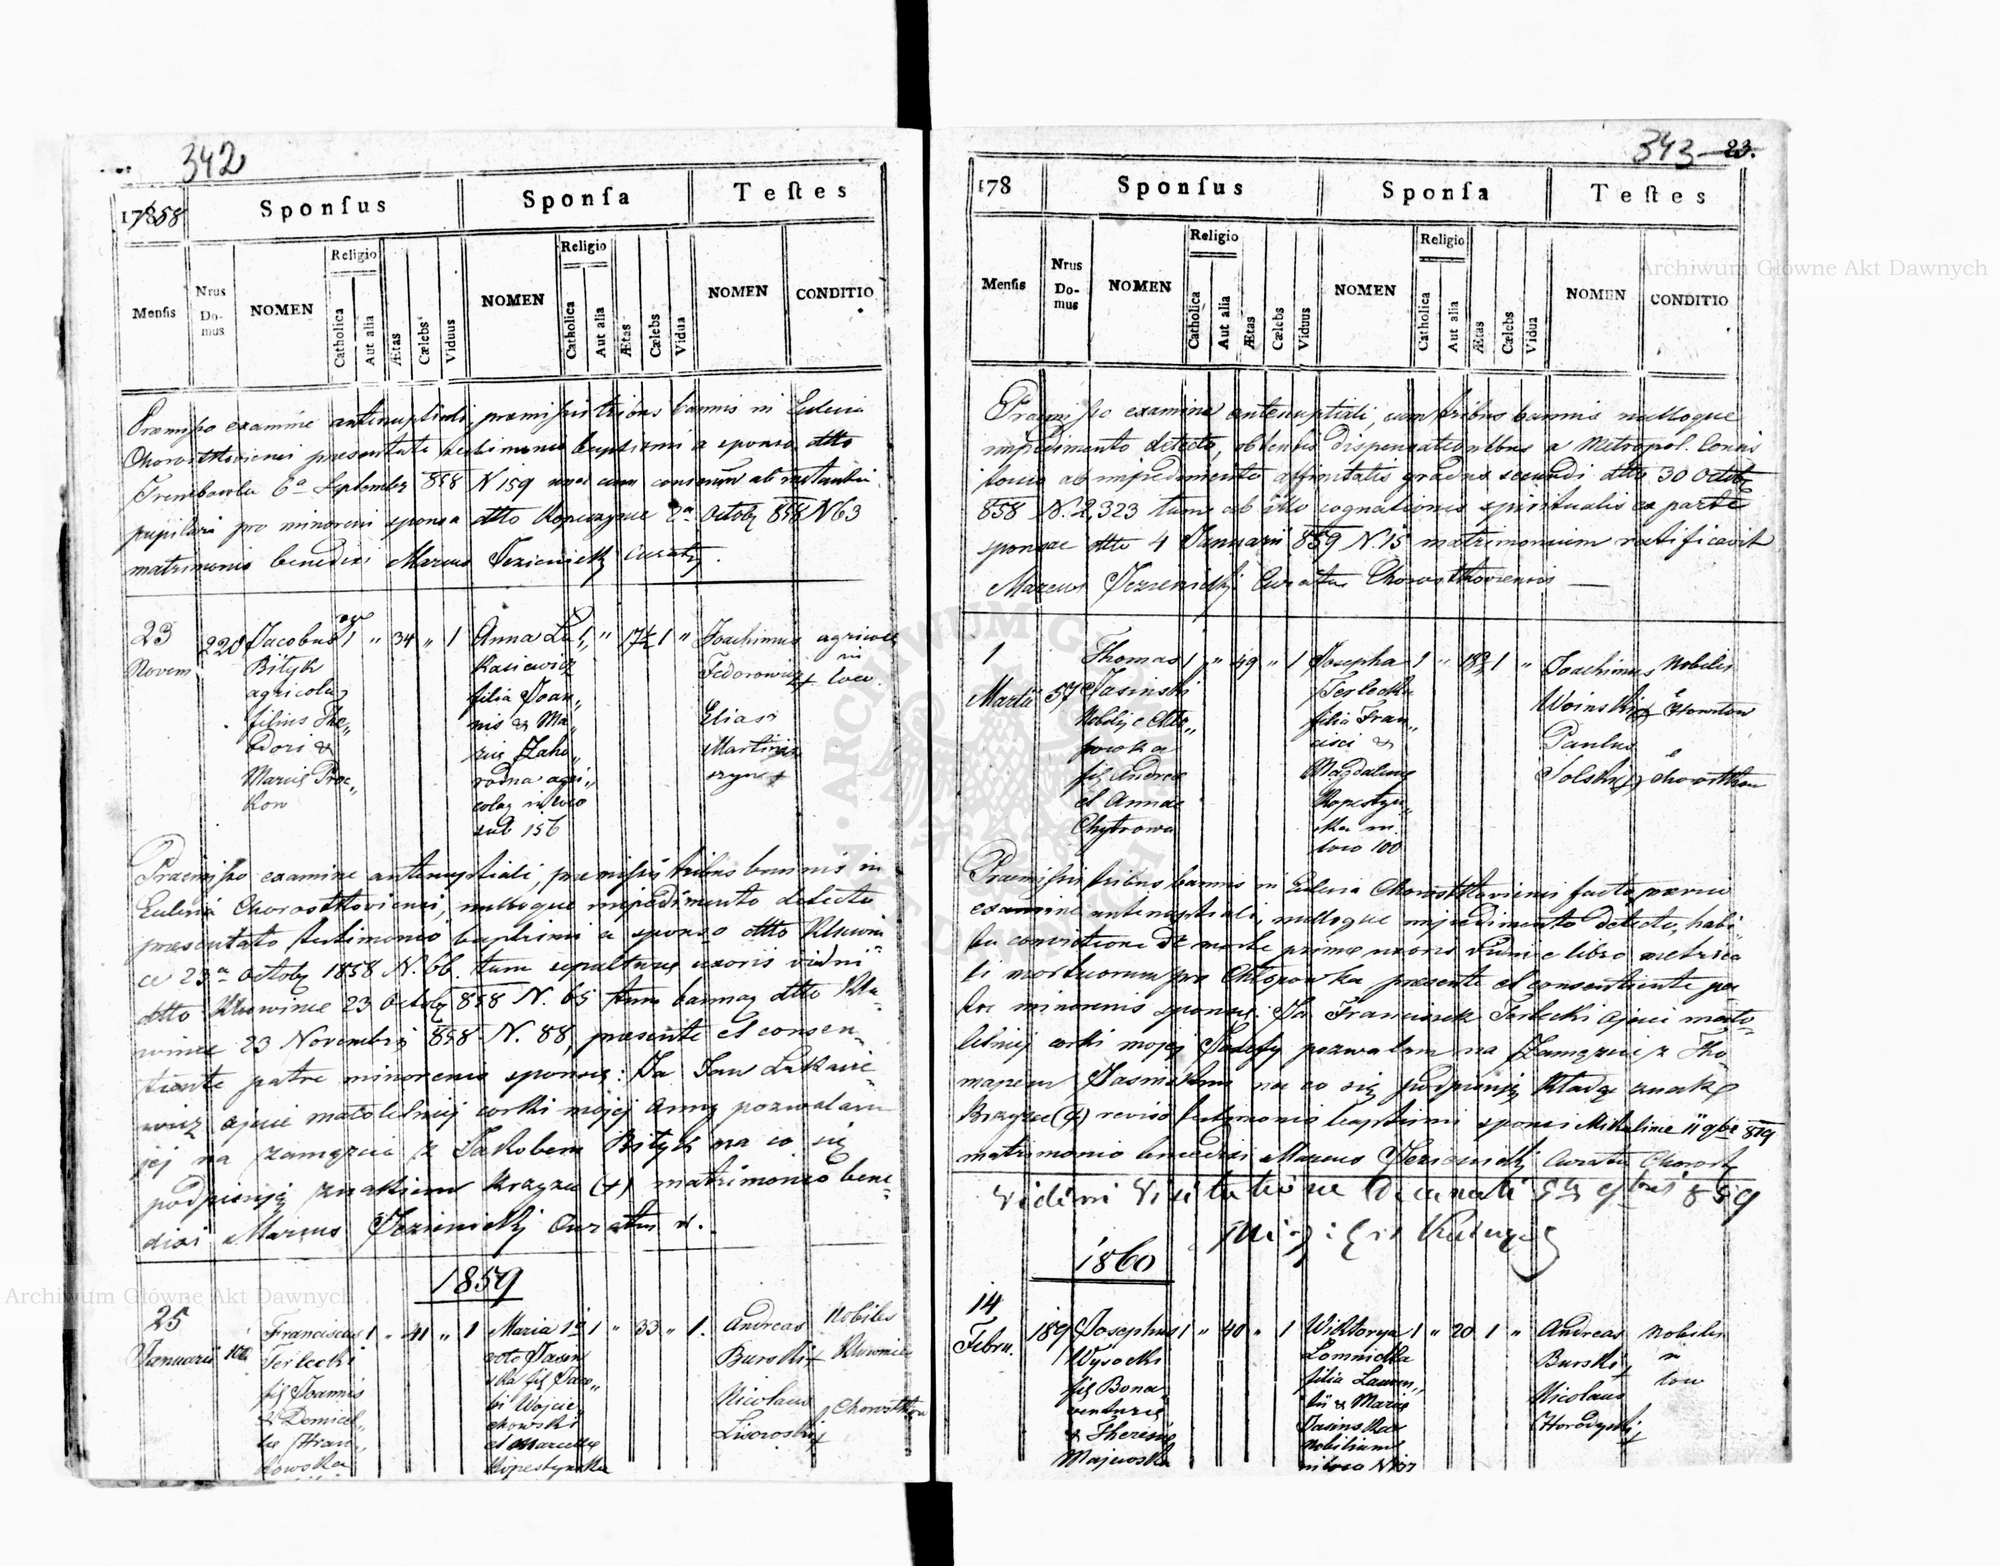 342
17858
Sponsus
Sponsa
Testes
Mensis
Nrus Domus
NOMEN
Religio
Catholica
Aut alia
Ætas
Cælebs
Viduus
NOMEN
Religio
Catholica
Aut alia
Ætas
Cælebs
Vidua
NOMEN
CONDITIO
Præmisso examine antenuptiali, præmissis tribus bannis in Ecclesia
Chorostkoviensi presentato testimonio baptismi a sponso dtto
Trembowla 6a Septembr 858 N 159 una cum consensu ab instantia
pupilari pro minoreni sponsa dtto Kopeczynce 2a Octob 858 N 63
matrimonio benedixi Marcus Curatus.
23 Novem
220
Jacobus
Bityk
agricola
filius The„
dori &
Mariæ Proc„
kow
1 „ 34 „ 1
Anna Lu„
kasiewicz
filia Joan„
nis & Ma„
riæ Zaho„
rodna agri„
colaz in loco
sub 156
1 „ 17½ 1 „
Joachimus
Fedorowicz +
Elias
Martin
szyn +
agricolæ
in
loco
Præmisso examine antenuptiali, præmissis tribus bannis in
Ecclesia Chorostkoviensi, nulloque impedimento detecto
presentato testimonio baptismi a sponso dtto Kluwin
ce 23a Octob 1858 N. 66. tum sepulturæ uxoris vidui
dtto Kluwince 23 Octob 858 N. 65 tum bannaz dtto Klu„
wince 23 Novembris 858 N. 88, presente et consen„
tiente patre minorenis sponsæ: Ja Jan Lukasie„
wicz ojciec małoletniej corki mojej Anny pozwalam
jej na zamęzcie z Jakobem Bityk na co się
podpisuję znakiem krzyza (+) matrimonio bene„
dixi Marcus Curatus
1859
25
Januarii
100
Franciscus
Terlecki
fil Joannis
& Domicel„
læ Stran„
kowska
1 „ 41 „ 1
Maria 1o
voto Jasin
ska fil Jaco„
bi Wojcie„
chowski
et Marcellæ
Kopestynska
1 „ 33 „ 1.
Andreas
Burski +
Nicolaus
Lisowski +
Nobiles
Kluwince
Chorostkow
343 23.
178
Sponsus
Sponsa
Testes
Mensis
Nrus Domus
NOMEN
Religio
Catholica
Aut alia
Ætas
Cælebs
Viduus
NOMEN
Religio
Catholica
Aut alia
Ætas
Cælebs
Vidua
NOMEN
CONDITIO
Præmisso examine antenuptiali, cum tribus bannis nulloque
impedimento detecto, obtentis dispensationibus a Metropol. Consis
torio ab impedimento affinitatis gradus secundi dtto 30 Octob
858 N. 2,323 tum ab dtto cognationis spiritualis ex parte
sponsae dtto 4 Januarii 859 N. 15 matrimonium ratificavit
Marcus Curatus Chorostkoviensis
1
Martii
57
Thomas
Jasinski
Nobilis e Chło„
powka
fil Andreæ
et Annæ
Chytrowa
1 „ 49 „ 1
Josepha
Terlecka
filia Fran„
cisci &
Magdalenæ
Kopestyn„
ska in
loco 100
1 „ 18 1 „
Joachimus
Woinski +
Paulus
Solski (+)
Nobiles
e Howilow
e Chorostkow
Præmissis tribus bannis in Ecclesia Chorostkoviensi facto, prævio
examine antenuptiali, nulloque impedimento detecto, habi„
ta convictione de morte primæ uxoris vidui e libro metrica„
li mortuorum pro Chłopowka presente et consentiente pa„
tre minorenis sponsæ: Ja Franciszek Terlecki ojciec mało„
letniej corki mojej Jozefy pozwalam na zamęzcie z Tho„
maszem Jasinskim na co się podpisuję kładąc znak
Krzyza (+) reviso testimonio baptismi sponsi Michalince 11 9bris 859
matrimonio benedixi Marcus Curatus Chorostk
Vidi in Visitatione Decanali 9bris 859
1860
14
Febru.
189
Josephus
Wysocki
fil Bona„
venturæ
& Theresiæ
Majewska
1 „ 40 „ 1
Wiktorya
Lomnicka
filia Lauren„
tii & Mariæ
Jasinska
nobilium
in loco N
1 „ 20 1 „
Andreas
Burski +
Nicolaus
Horodyski +
Nobiles
in
loco
Archiwum Główne Akt Dawnych
Archiwum Główne Akt Dawnych
ARCHIWUM GŁÓWNE AKT DAWNYCH